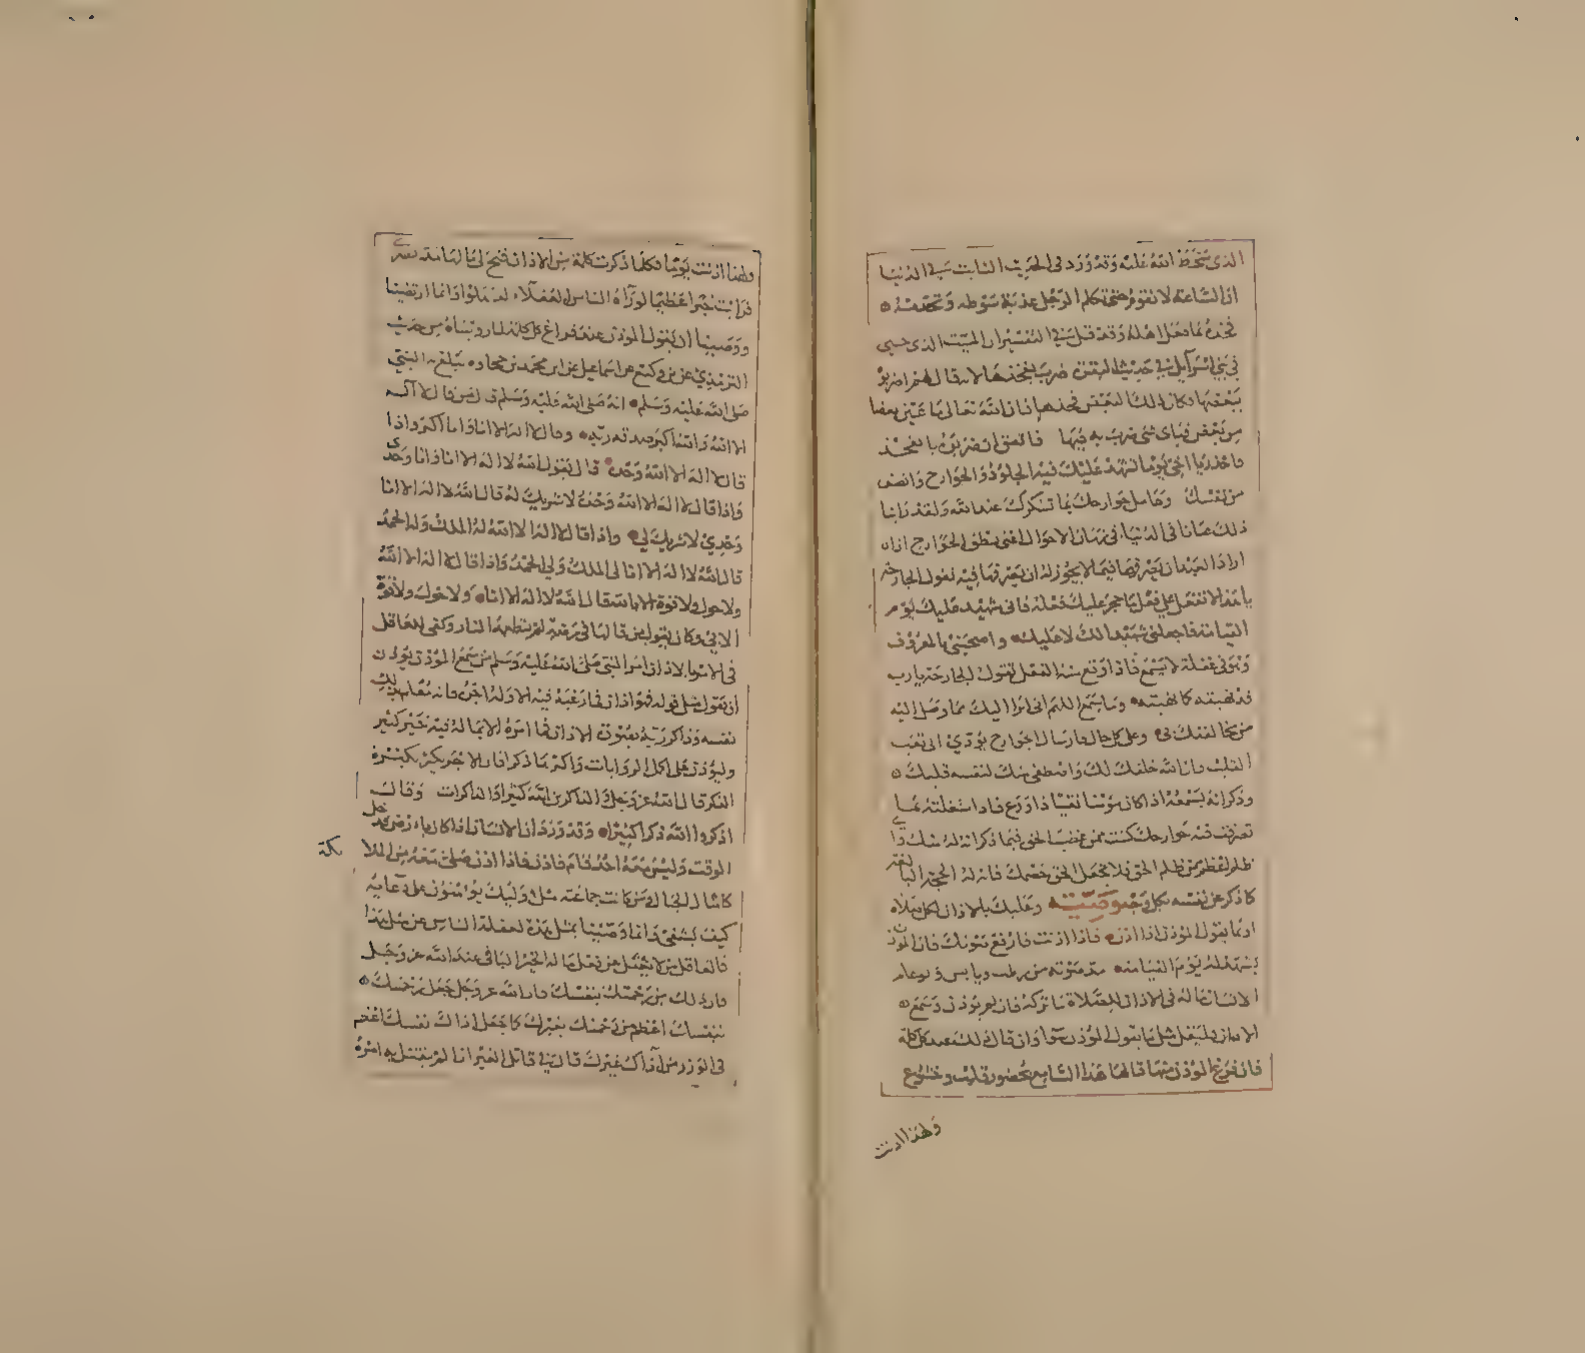 الذى سخط الله عليه وقد ورد فى الحديث الثابت فى الدنيا
ان الساعة لا تقوم حتى تكلم الرجل عذبة سوطه وتحدثه
فخذه بما فعل اهله وقد قيل فى التفسير ان الميت الذى حيى
فى بنى اسرائيل فى حديث البقرة ضرب بفخذها لانه قال لهم اضربوه
ببعضها فكان ذلك البعض فخذها فان الله تعالى ما عين بعضا
من بعض فباى شى ضرب به فيها فاتفق ان ضربوه بالفخذ
فاحذر يا اخى يوما تشهد عليك فيه الجلود والجوارح وانصف
من نفسك وعامل جوارحك بما تشكرك عند الله ولقد راينا
ذلك عيانا فى الدنيا فى زمان الاحوال اعنى نطق الجوارح اذا
اراد العبد ان يصرفها فيما لا يجوز له ان يصرفها فيه تقول الجارحة
يا هذا لا تفعل على فعل ما حجر عليك فعله فانى شهيد عليك يوم
القيامة فاجعلنى شهيدا لك لا عليك واصحبنى بالمعروف
وهو فى غفلة لا يسمع فاذا وقع منه الفعل تقول الجارحة يارب
قد نهيته كما نهيته وما سمع اللهم انى ابرا اليك مما وصل اليه
من مخالفتك بى وعلى كل حال فارسال الجوارح يودى الى تعب
القلب فان الله خلقك لك واصطفى منك لنفسه قلبك
وذكر انه يسعه اذا كان مومنا تقيا ذا ورع فاذا اشغلته بما
تصرفت فيه جوارحك كنت ممن غصب الحق فيما ذكر انه له منك واى
ظلم اعظم من ظلم الحق فلا تجعل الحق خصمك فان له الحجة البالغة
كما ذكر عن نفسه بكل وجه وصية وعليك بالاذان لكل صلاة
او بما يقول الموذن اذا اذن فاذا اذنت فارفع صوتك فان الموذن
يشهد له يوم القيامة مدى صوته من رطب ويابس ولو علم
الانسان ما له فى الاذان للصلاة ما تركه فان لم يوذن وسمع
الاذان فليقل مثل ما يقول الموذن سوا وان قال ذلك عند كل كلمة
فاذا فرغ الموذن منها قالها هذا السامع بحضور قلب وخشوع
ولهذا اذنت
ولهذا اذنت يوما فكلما ذكرت كلمة من الاذان فتح لى ما لها مد بصرى
فرايت خيرا عظيما لو رآه الناس العقلاء
ووصيتنا ان يقول الموذن عند فراغ كل كلمة لما رويناه من حديث
الترمذى عن بن وكيع عن اسماعيل عن ابن محمد بن جحادة يبلغ به النبى
صلى الله عليه وسلم انه صلى الله عليه وسلم قال من قال لا اله
الا الله والله اكبر صدقه ربه وقال لا اله الا انا وانا اكبر واذا
قال لا اله الا الله وحده قال يقول الله لا اله الا انا وانا وحدى
واذا قال لا اله الا الله وحده لا شريك له قال الله لا اله الا انا
وحدى لا شريك لى واذا قال لا اله الا الله له الملك وله الحمد
قال الله لا اله الا انا لى الملك ولى الحمد واذا قال لا اله الا الله
ولا حول ولا قوة الا بالله قال الله لا اله الا انا ولا حول ولا قوة
الا بى وكان يقول من قالها فى مرضه لم تطعمه النار وكفى للعاقل
فى الاذان امر النبى صلى الله عليه وسلم من سمع الموذن يوذن
ان يقول مثل قوله فهو اذان فما رغبه فيه الا وله اجره فانه معلم لذلك
نفسه وذاكر ربه بصورة الاذان فما امره الا بما له فيه خير كثير
وليوذن على اكمل الروايات واكثرها ذكرا فان الاجر يكثر بكثرة
الذكر قال الله عز وجل والذاكرين الله كثيرا والذاكرات وقال
اذكروا الله ذكرا كثيرا وقد ورد ان الانسان اذا كان بارض فدخل
الوقت وليس معه احد قام فاذن فاذا اذن صلى معه من الملا
ئكة
كامثال الجبال ومن كانت جماعته مثل اوليك يومنون على دعايه
كيف يشقى وانما وصينا بمثل هذه لغفلة الناس عن مثل هذا
فالعاقل من لا يغفل عن فعل ما له الخير الباقى عند الله عز وجل
فان ذلك من رحمتك بنفسك فان الله عز وجل جعل رحمتك
بنفسك اعظم من رحمتك بغيرك كما جعل اذاك نفسك اعظم
فى الوزر من اذاك غيرك قال فى قاتل الغير اذا لم يقتل به امره